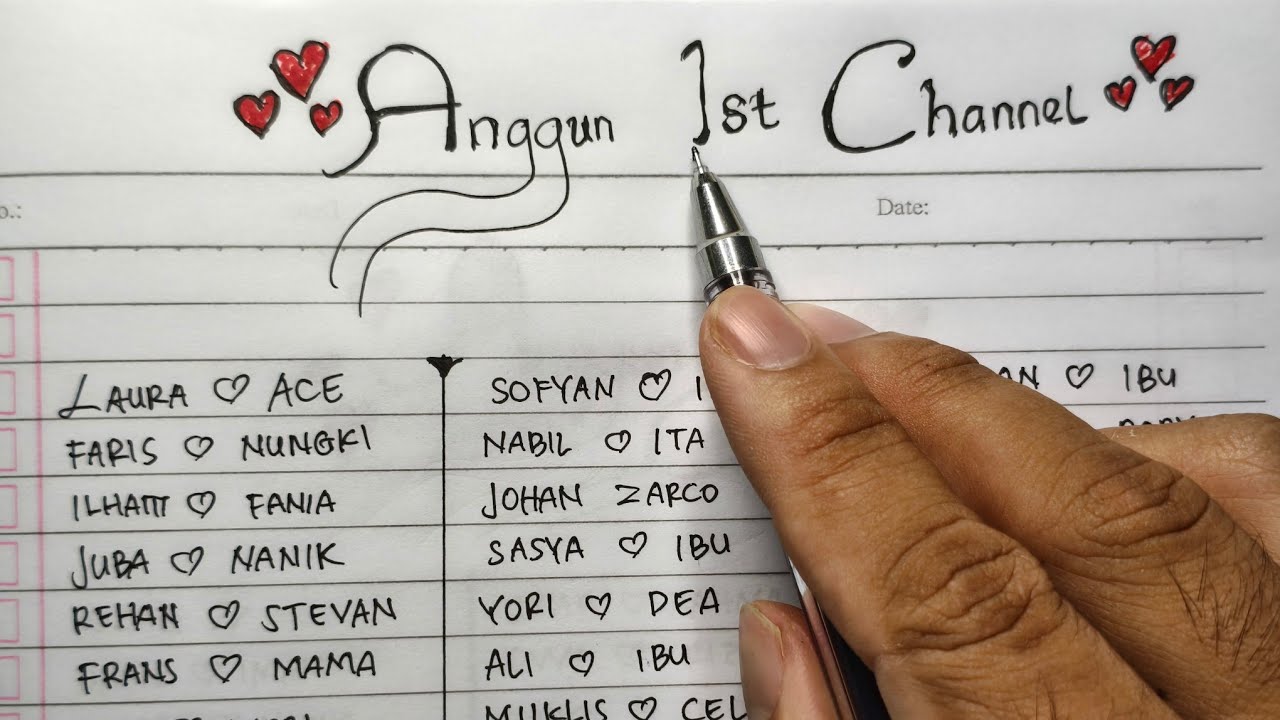 Anggun 1st Channel
Date:
LAURA ♡ ACE
FARIS ♡ NUNGKI
ILHAM ♡ FANIA
JUBA ♡ NANIK
REHAN ♡ STEVAN
FRANS ♡ MAMA
SOFYAN ♡
NABIL ♡ ITA
JOHAN ZARCO
SASYA ♡ IBU
YORI ♡ DEA
ALI ♡ IBU
MUKLIS ♡
♡ IBU